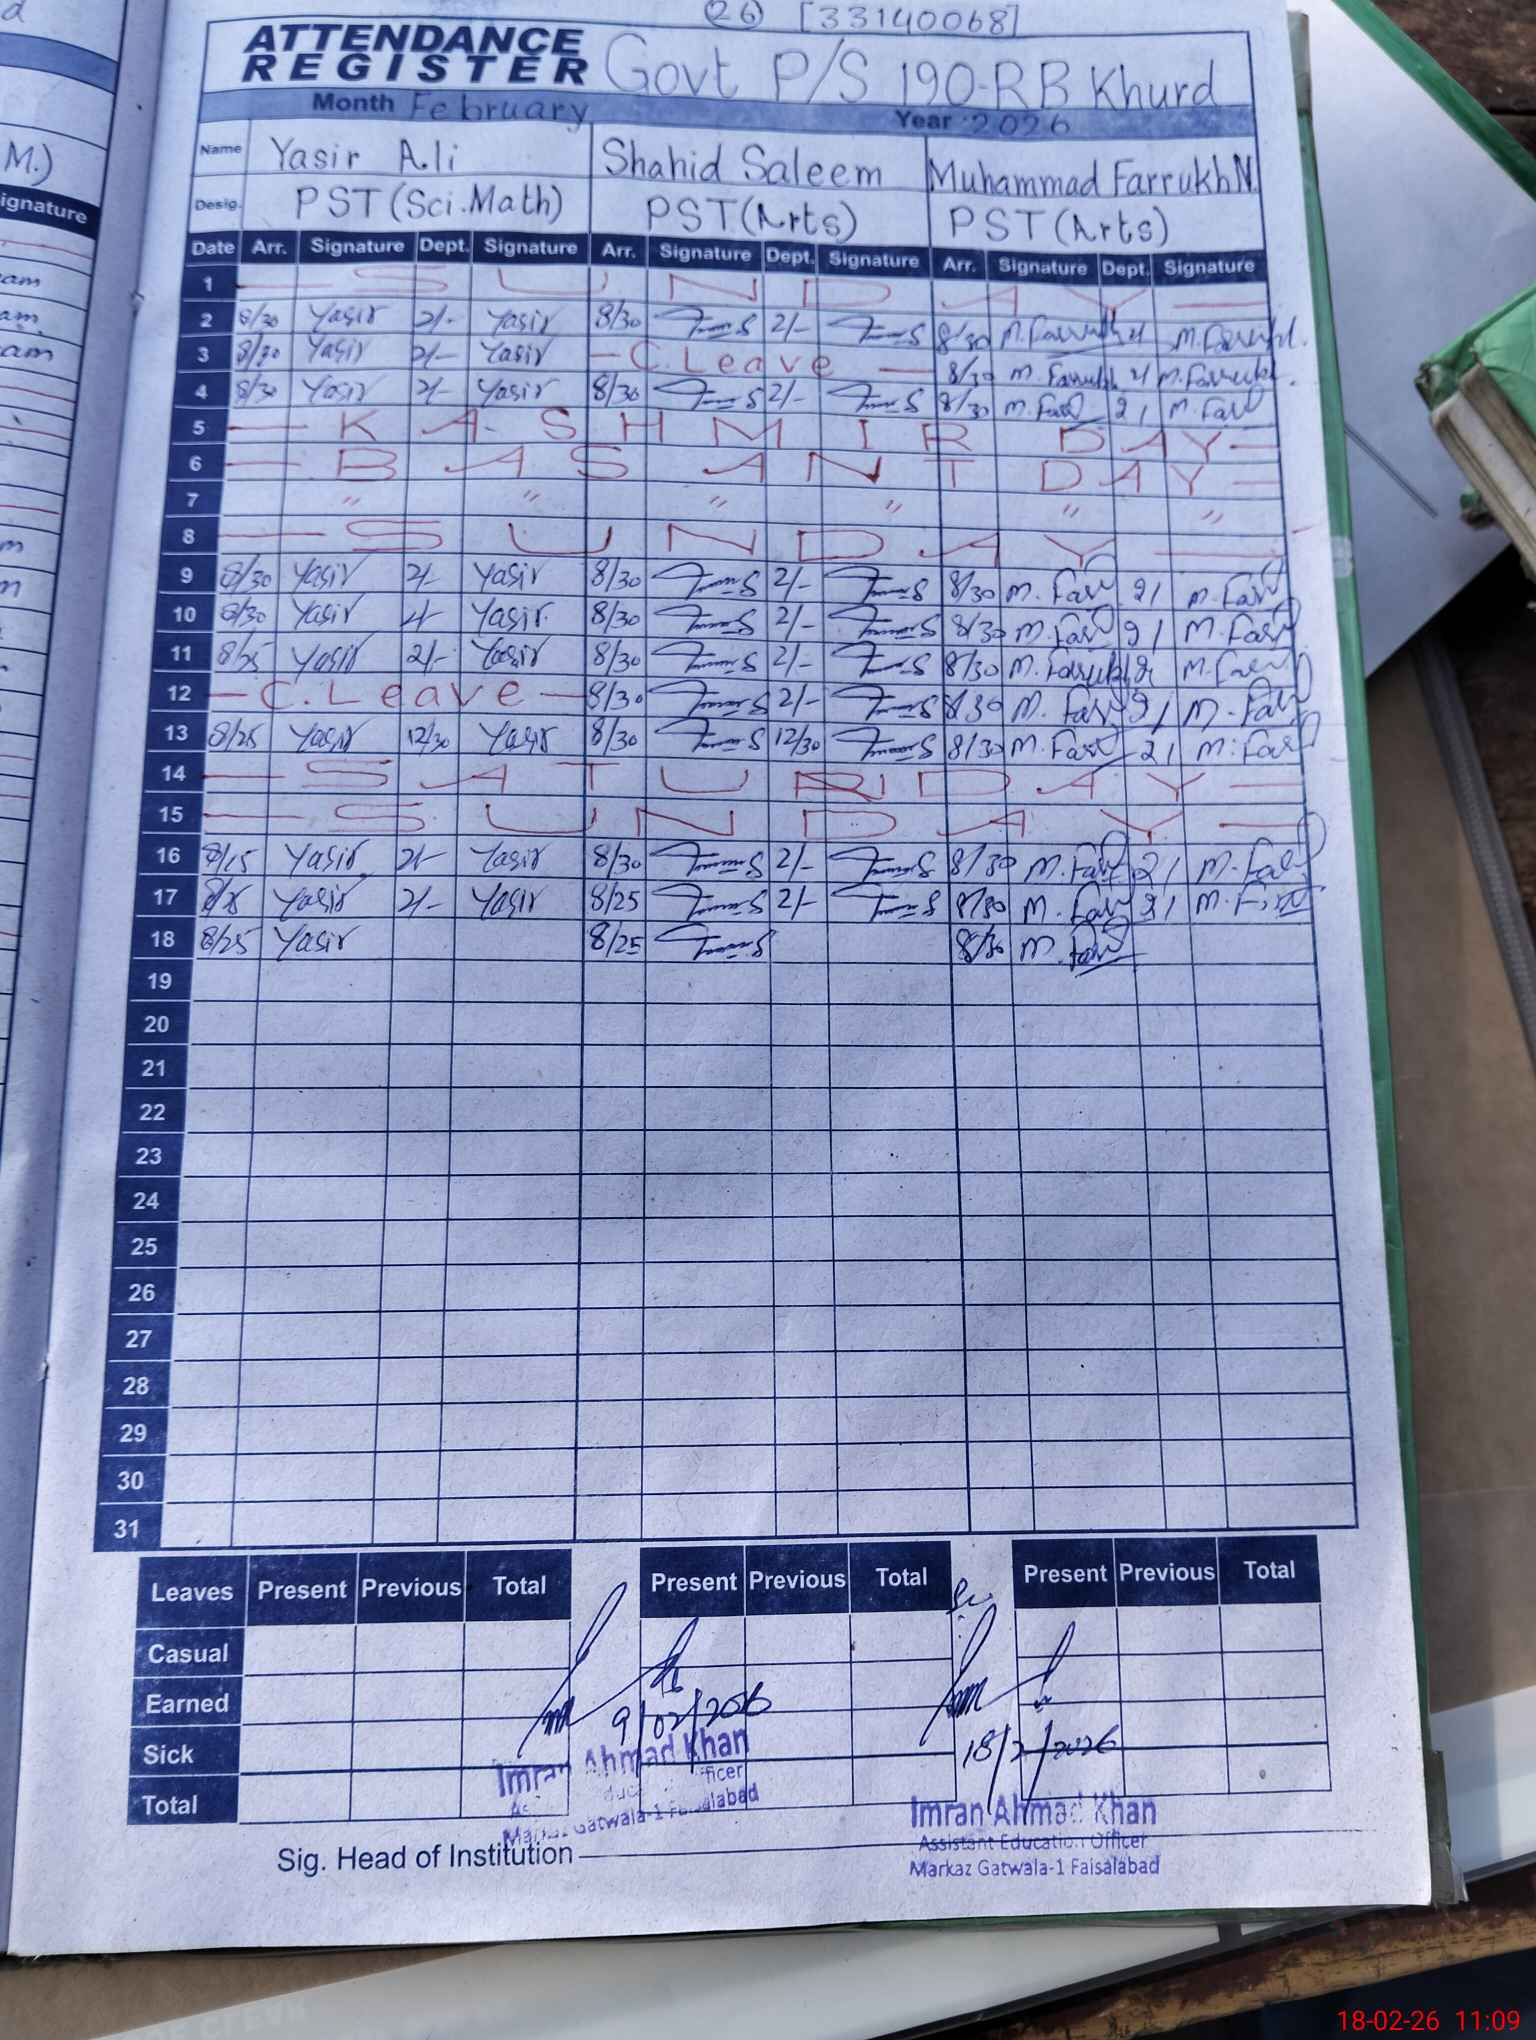 (26) [33140068]
ATTENDANCE
REGISTER
Govt P/S 190-RB Khurd
Month February Year 2026
Name Yasir Ali Shahid Saleem Muhammad Farrukh N.
Desig. PST (Sci.Math) PST (Arts) PST (Arts)
Date Arr. Signature Dept. Signature Arr. Signature Dept. Signature Arr. Signature Dept. Signature
1 — S U N D A Y —
2 8/30 Yasir 2/- Yasir 8/30 2/- 8/30 M. Farrukh 2/ M. Farrukh
3 8/30 Yasir 2/- Yasir — C. Leave — 8/30 M. Farrukh 2/ M. Farrukh
4 8/30 Yasir 2/- Yasir 8/30 2/- 8/30 M. Farr 2/ M. Farr
5 — K A S H M I R D A Y —
6 — B A S A N T D A Y —
7 " " " " " "
8 — S U N D A Y —
9 8/30 Yasir 2/- Yasir 8/30 2/- 8/30 M. Farr 2/ M. Farr
10 8/30 Yasir 2/- Yasir 8/30 2/- 8/30 M. Farr 2/ M. Farr
11 8/25 Yasir 2/- Yasir 8/30 2/- 8/30 M. Farrukh 2/ M. Farr
12 — C. Leave — 8/30 2/- 8/30 M. Farr 2/ M. Farr
13 8/25 Yasir 12/30 Yasir 8/30 12/30 8/30 M. Farr 2/ M. Farr
14 — S A T U R D A Y —
15 — S U N D A Y —
16 8/15 Yasir 2/- Yasir 8/30 2/- 8/30 M. Farr 2/ M. Farr
17 Yasir 2/- Yasir 8/25 2/- 8/30 M. Farr 2/ M. Farr
18 8/25 Yasir 8/25 8/30 M. Farr
19
20
21
22
23
24
25
26
27
28
29
30
31
Leaves Present Previous Total Present Previous Total Present Previous Total
Casual
Earned
Sick
Total
9/02/2026
Imran Ahmad Khan
Markaz Gatwala-1 Faisalabad
18/2/2026
Imran Ahmad Khan
Assistant Education Officer
Markaz Gatwala-1 Faisalabad
Sig. Head of Institution
M.)
ignature
am
am
am
18-02-26 11:09